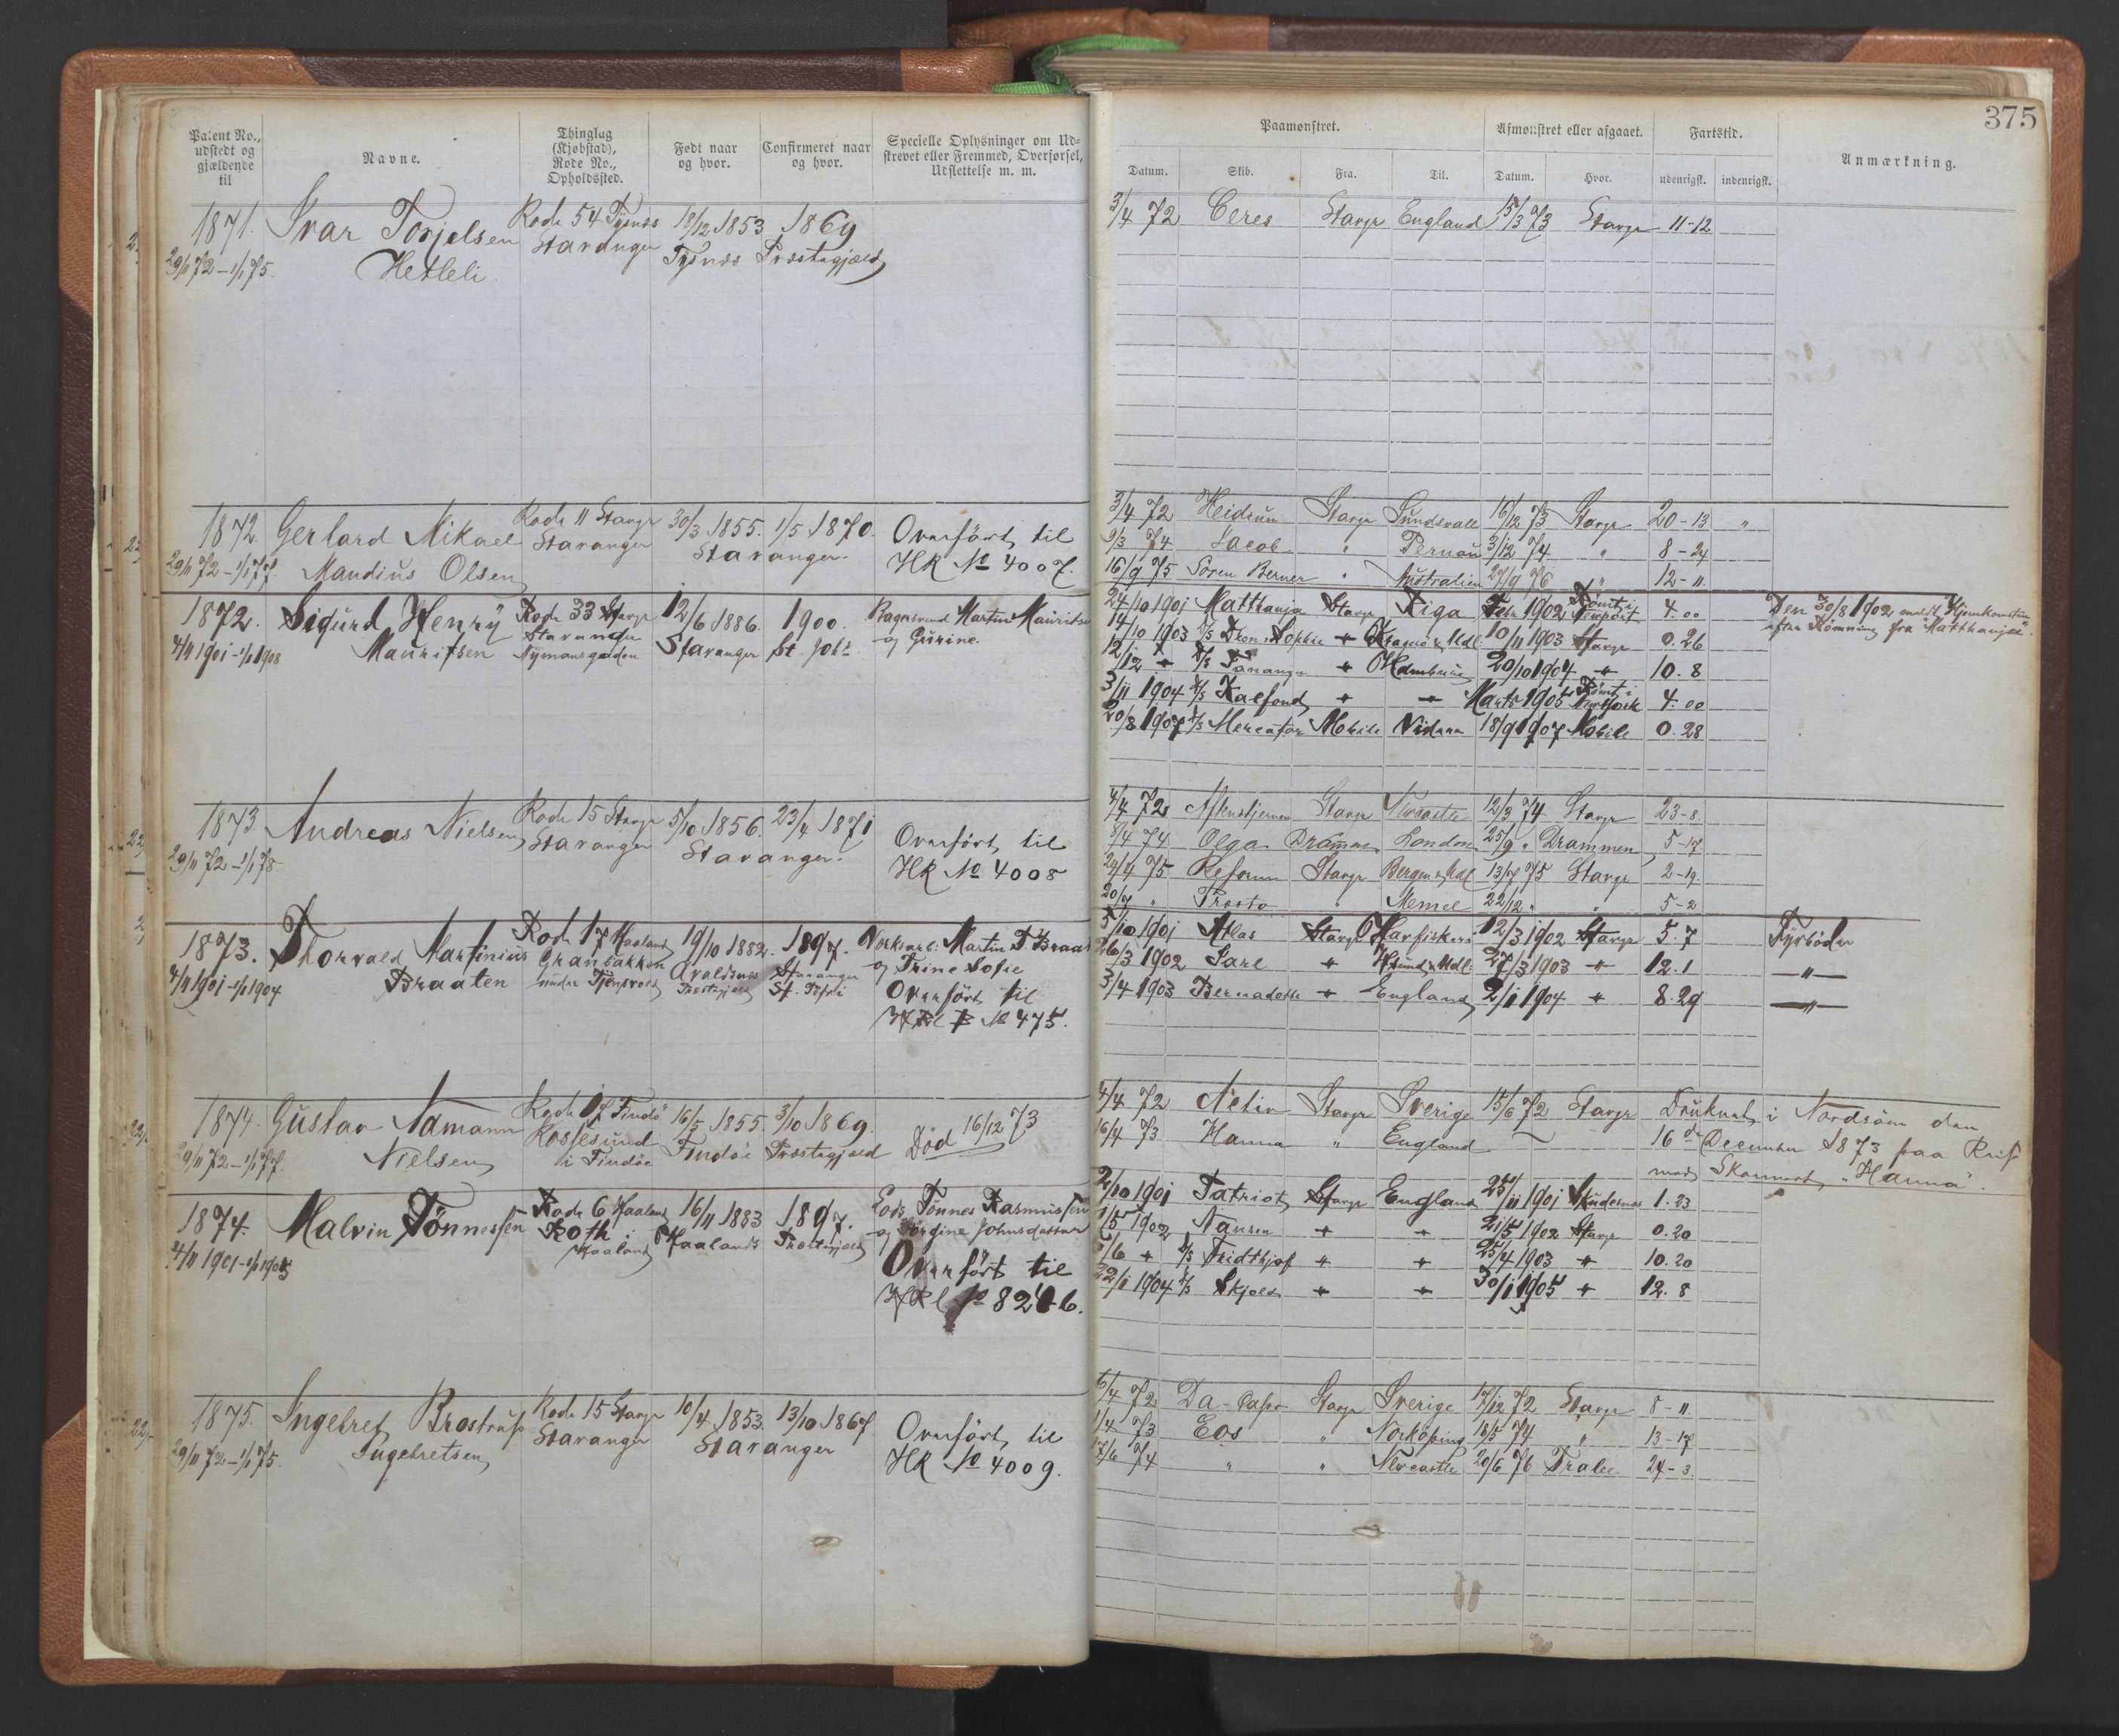 375
Patent No., udstedt og gjældende til
Navne.
Thinglug (Kjøbstad), Rode No., Opholdssted.
Født naar og hvor.
Confirmeret naar og hvor.
Specielle Oplysninger om Ud-
strevet eller Fremmed, Overførsel,
Udslettelse m. m.
Paamønstret.
Afmønstret eller afgaaet.
Fartstid.
Anmærkning.
Datum. Skib. Fra. Til. Datum. Hvor. udenrigsk. indenrigsk.
1871. Ivar Torjelsen Rode 54 Tysnæs 18/12 1853 1869
29/11 72 - 1/1 75. Hetleli Stavanger Tysnæs Præstegjæld
3/4 72 Ceres Stavgr England 15/3 73 Stavgr 11-12
1872. Gerhard Mikael Rode 11 Stavgr 30/3 1855. 1/5 1870. Overført til
29/11 72 - 1/1 77. Mandius Olsen Stavanger Stavanger. HR No 4007.
3/4 72 Heidrun Stavgr Sundsvall 16/12 73 Stavgr 20-13 "
9/3 74 Jacob " Pernau 3/12 74 " 8-24
16/9 75 Sören Berner " Australien 27/9 76 " 12-11
1872. Sigurd Henry Rode 33 Stavgr 12/6 1886. 1900. Bagersvend Martin Mauritsen
4/11 1901 - 1/1 1908 Mauritsen Stavanger Nymansgaden Stavanger St. Joh. og Gurine.
24/10 1901 Matthanja Stavgr Riga Febr 1902 Römt i Newport 4.00 Den 30/8 1902 meldt Hjemkomsten
efter Rømning fra "Matthanja".
14/10 1903 D/S Dron. Sophie " Kragerö & Udl. 10/11 1903 Stavgr 0.26
12/12 " D/S Tananger " Hamburg 20/10 1904 " 10.8
3/11 1904 D/S Kalfond " " Marts 1905 Römt i New York 4.00
20/8 1907 D/S Mercator Mobile 18/9 1907 Mobile 0.28
1873. Andreas Nielsen Rode 15 Stavgr 5/10 1856. 23/4 1871 Overført til
29/11 72 - 1/1 78 Stavanger Stavanger. HR No 4008
4/4 72 Aftenstjernen Stavgr Newcastle 12/3 74 Stavgr 23-8
8/4 74 Olga Drammen London 25/9 " Drammen 5-17
24/4 75 Reform Stavgr Bergen & Udl 13/7 75 Stavgr 2-19
20/7 " Trosto " Memel 22/12 " " 5-2
1873. Thorvald Martinius Rode 17 Haaland 19/10 1882. 1897. Værkkarl: Martin T. Braaten
4/11 1901 - 1/1 1904 Braaten under Tjensvold Avaldsnes Præstegjæld Stavanger St. Petri og Trine Sofie
Overført til
HRl B No 475.
5/10 1901 Atlas Stavgr Havfiskeri 12/3 1902 Stavgr 5.7 Fyrböder
26/3 1902 Sarl " H.sund & Udl. 27/3 1903 " 12.1 — " —
3/4 1903 Bernadotte " England 2/1 1904 " 8.29 — " —
1874. Gustav Namann Rode 17 Findö 16/5 1855. 3/10 1869. Død 16/12 73
29/11 72 - 1/1 77. Nielsen i Findöe Findöe Præstegjæld
4/4 72 Activ Stavgr Sverige 15/6 72 Stavgr Druknet i Nordsöen den
16/4 73 Hanna " England — 16de December 1873 paa Reise
med Skonnert "Hanna".
1874. Malvin Tönnessen Rode 6 Haaland 16/11 1883 1897. Tönnes Rasmussen
4/11 1901 - 1/1 1905 Roth i Haaland Haalands Præstegjæld og Jörgine Johnsdatter
Overført til
HRl No 8246.
2/10 1901 Patriot Stavgr England 25/11 1901 Skudesnes 1.23
1/5 1902 Nansen " " 21/5 1902 Stavgr 0.20
5/6 " D/S Fridthjof " " 25/4 1903 " 10.20
22/1 1904 D/S Skjold " " 30/1 1905 " 12.8
1875. Ingebret Brostrup Rode 15 Stavgr 10/4 1853 13/10 1867 Overført til
29/11 72 - 1/1 75. Ingebretsen Stavanger Stavanger HR No 4009.
6/4 72 Da-Capo Stavgr Sverige 17/12 72 Stavgr 8-11
1/4 73 Eos " Norköping 18/5 74 " 13-17
17/6 74 " " Newcastle 20/6 76 Tralee 24-3